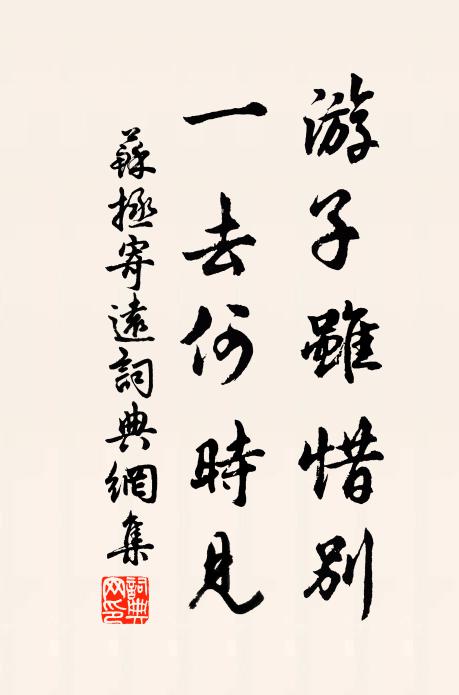 游子雖惜別
一去何時見
蘇拯寄遠詞典網集
詞典网印